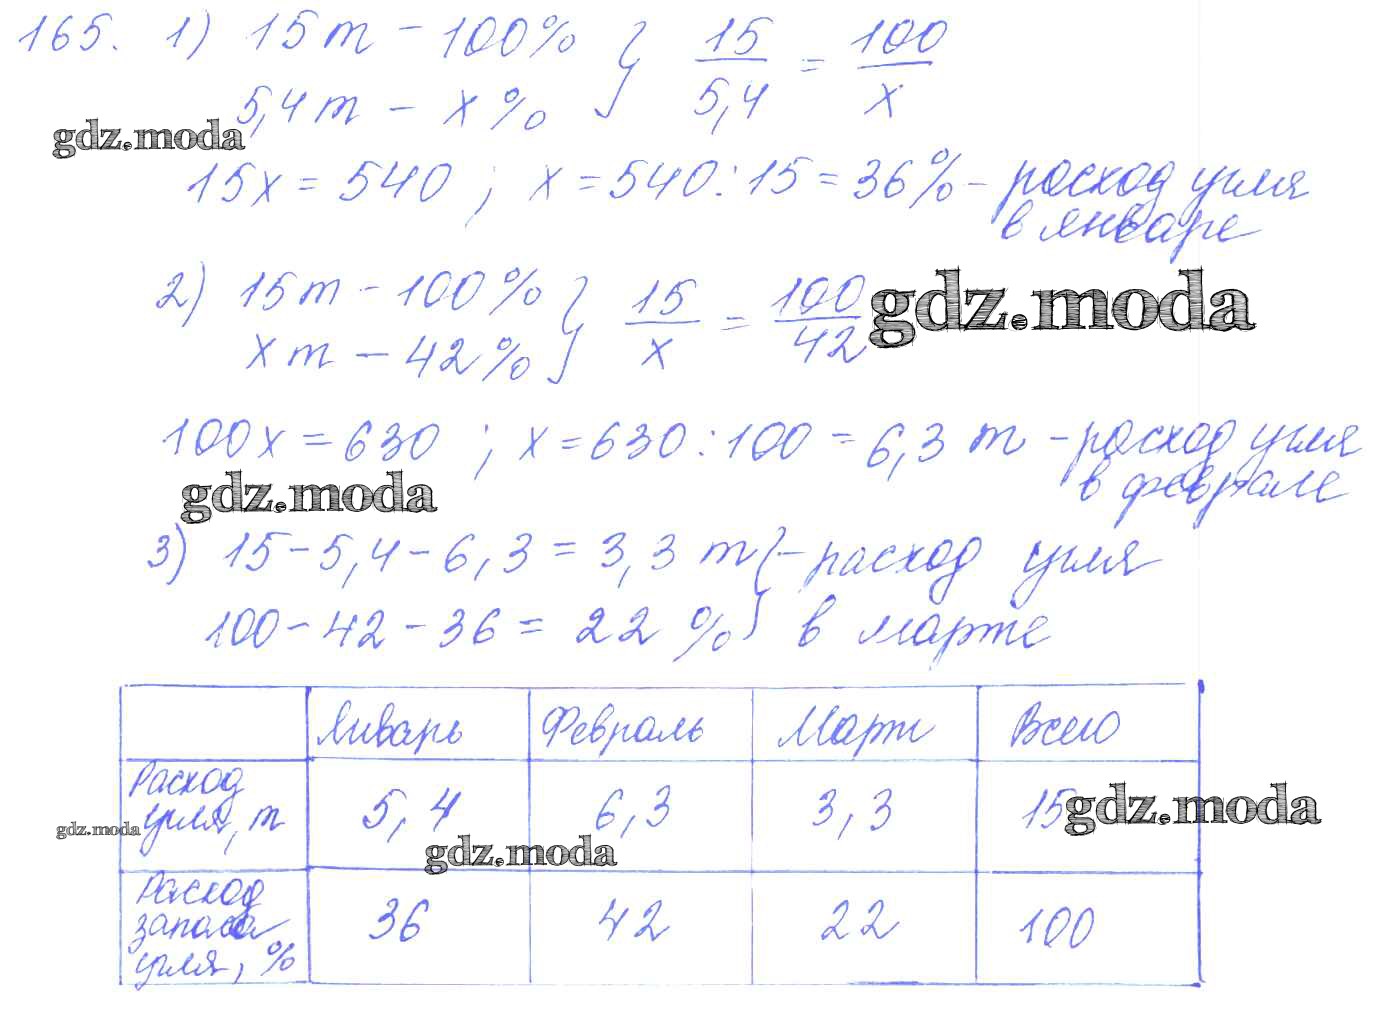 165. 1) 15т - 100% } 15/5,4 = 100/x
5,4т - x%
gdz.moda
15x = 540 ; x = 540:15 = 36% - расход угля
в январе
2) 15т - 100% } 15/x = 100/42
xт - 42%
gdz.moda
100x = 630 ; x = 630:100 = 6,3 т - расход угля
в феврале
gdz.moda
3) 15 - 5,4 - 6,3 = 3,3 т } - расход угля
100 - 42 - 36 = 22 % в марте
Январь Февраль Март Всего
Расход
угля, т 5,4 6,3 3,3 15
gdz.moda
gdz.moda
gdz.moda
Расход
запаса 36 42 22 100
угля, %